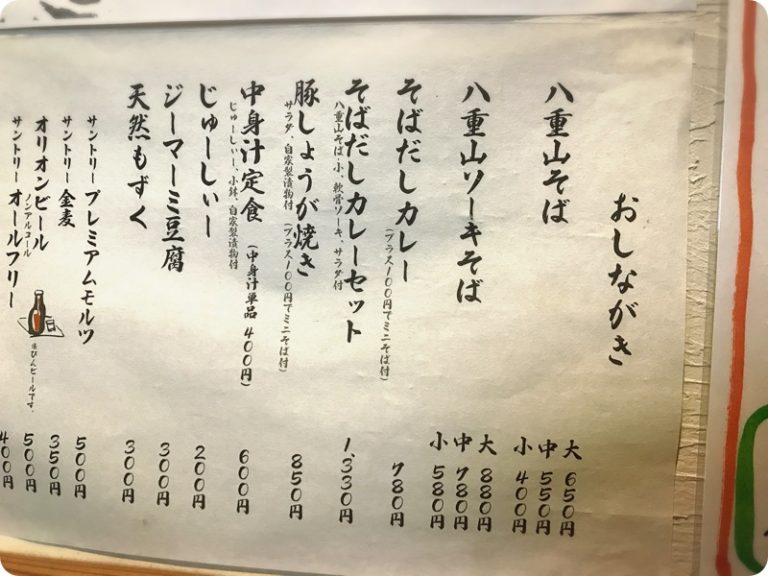 おしながき
八重山そば
大 650円
中 550円
小 400円
八重山ソーキそば
大 880円
中 780円
小 580円
そばだしカレー
(プラス100円でミニそば付)
780円
そばだしカレーセット
八重山そば・小、軟骨ソーキ、サラダ付
1,330円
豚しょうが焼き
サラダ、自家製漬物付 (プラス100円でミニそば付)
850円
中身汁定食 (中身汁単品 400円)
じゅーしぃー、小鉢、自家製漬物付
600円
じゅーしぃー
200円
ジーマーミ豆腐
300円
天然もずく
300円
サントリープレミアムモルツ
500円
サントリー金麦
350円
オリオンビール
びんビールです。
500円
ノンアルコール
サントリーオールフリー
400円